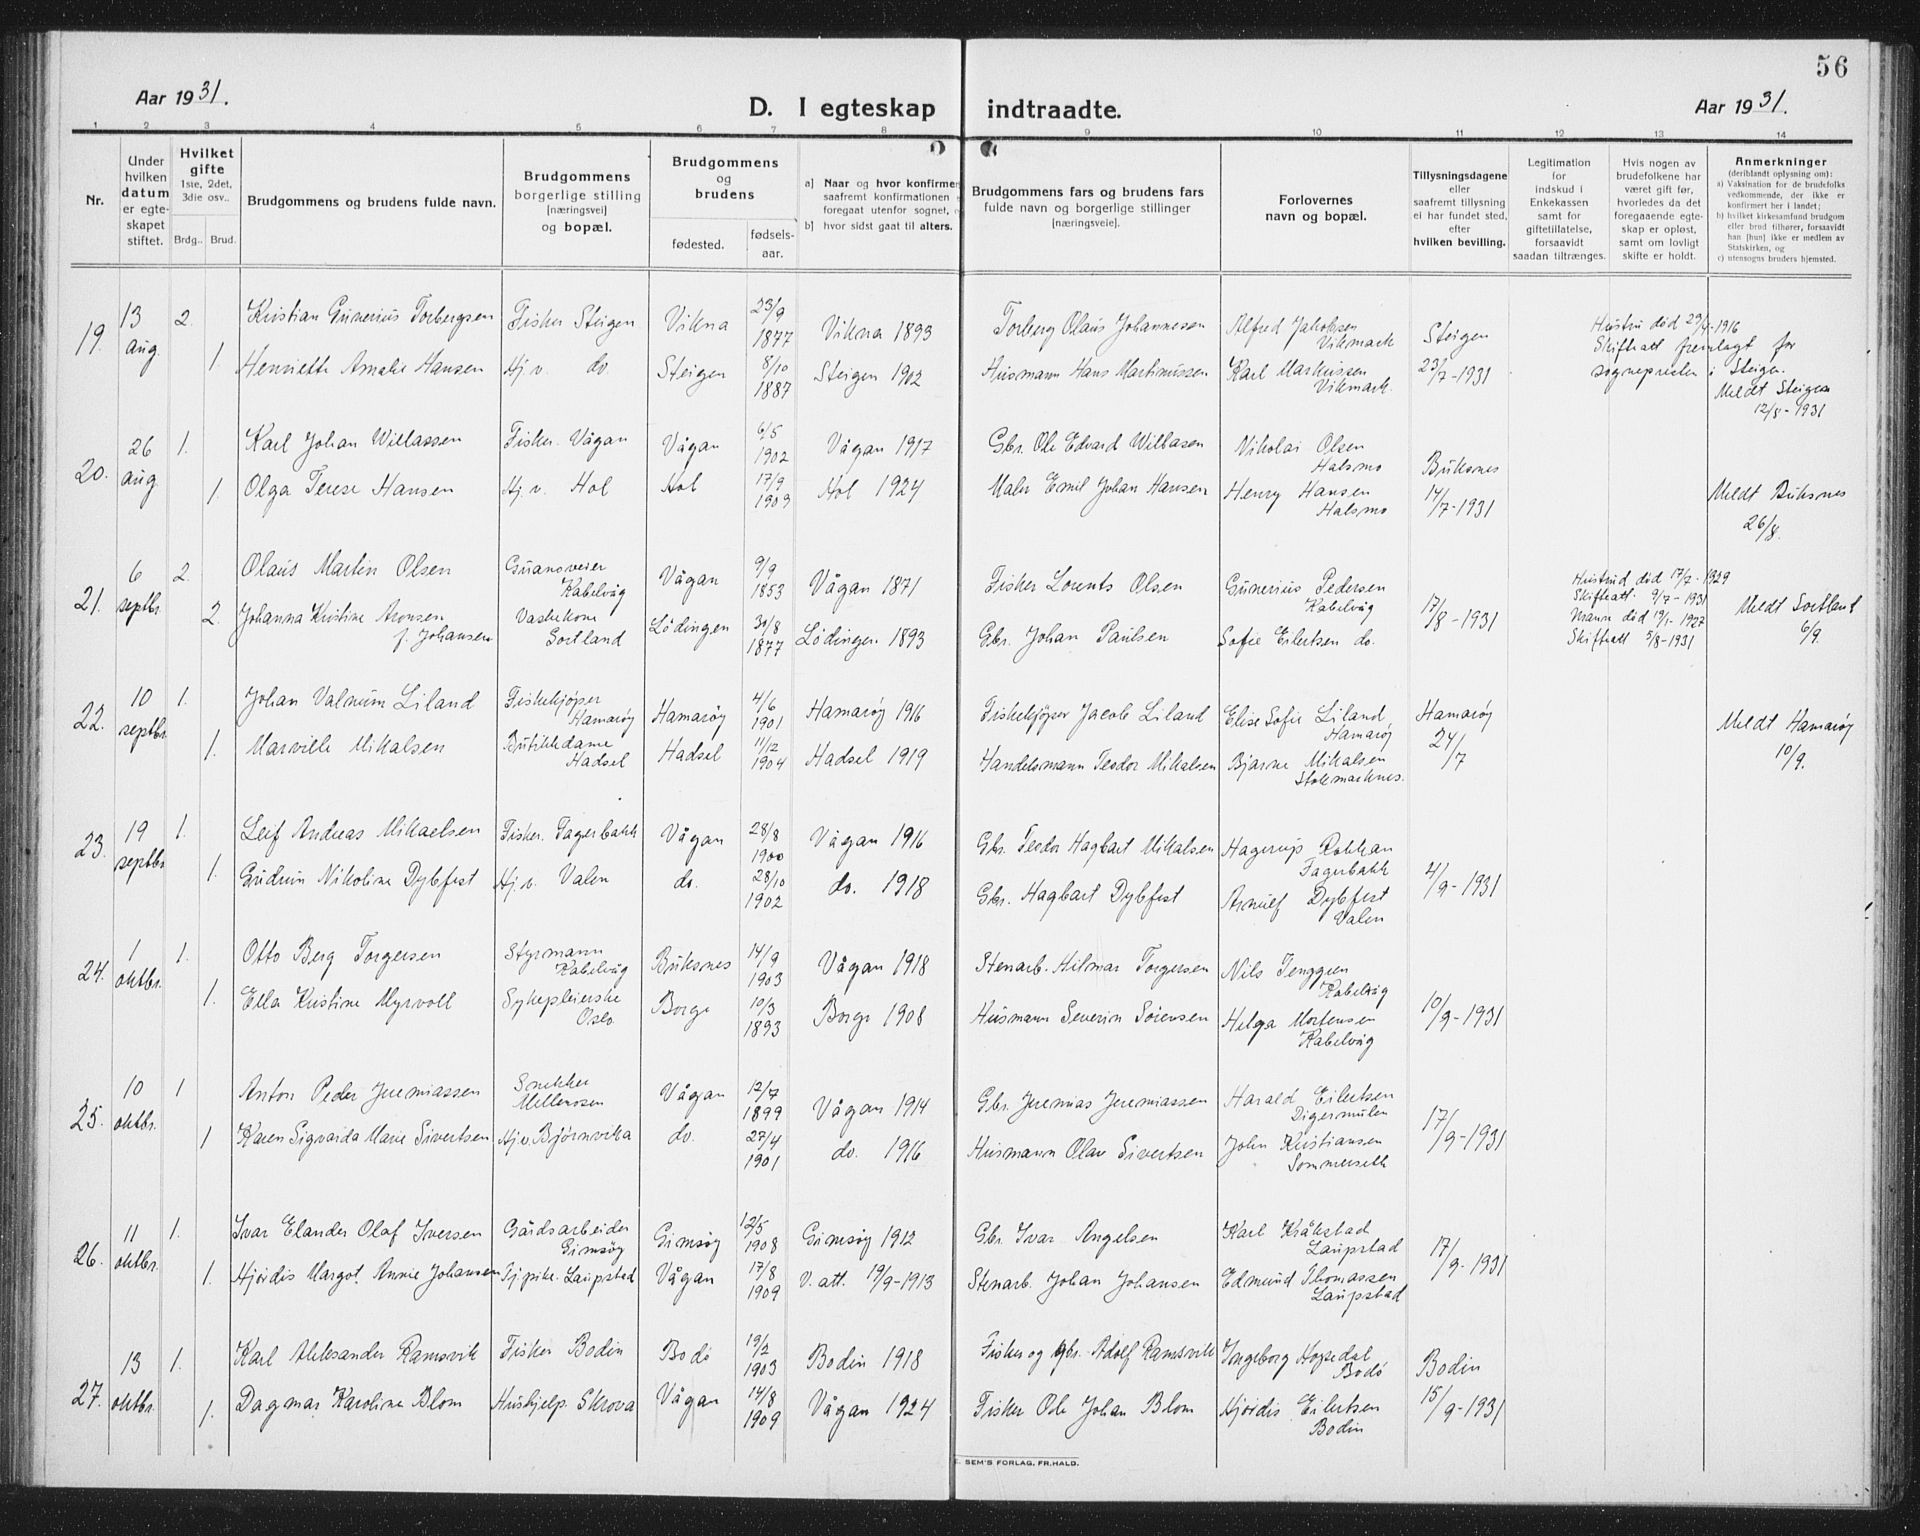 56
Aar 1931.
D. I egteskap indtraadte.
Aar 1931.
1 2 3 4 5 6 7 8 9 10 11 12 13 14
Nr.
Under hvilken datum er egteskapet stiftet.
Hvilket gifte 1ste, 2det, 3die osv..
Brdg.. Brud.
Brudgommens og brudens fulde navn.
Brudgommens borgerlige stilling [næringsvei] og bopæl.
Brudgommens og brudens
fødested. fødsels-aar.
a) Naar og hvor konfirmer
saafremt konfirmationen
foregaat utenfor sognet,
b) hvor sidst gaat til alters.
Brudgommens fars og brudens fars
fulde navn og borgerlige stillinger
[næringsveie].
Forlovernes
navn og bopæl.
Tillysningsdagene
eller
saafremt tillysning
ei har fundet sted,
efter
hvilken bevilling.
Legitimation
for
indskud i
Enkekassen
samt for
giftetillatelse,
forsaavidt
saadan tiltrænges.
Hvis nogen av
brudefolkene har
været gift før,
hvorledes da det
foregaaende egte-
skap er opløst,
samt om lovligt
skifte er holdt.
Anmerkninger
(deriblandt oplysning om):
a) Vaksination for de brudefolks
vedkommende, der ikke er
konfirmert her i landet;
b) hvilket kirkesamfund brudgom
eller brud tilhører, forsaavidt
han [hun] ikke er medlem av
Statskirken, og
c) utensogns bruders hjemsted.
19. 13 aug. 2. Kristian Gunerius Torbergsen Fisker Steigen Vikna 23/9 1877 Vikna 1893 Torberg Olaus Johannesen Alfred Jakobsen Vikmark Steigen 23/7-1931
1. Henriette Amalie Hansen Hj.v. do. Steigen 8/10 1887 Steigen 1902 Husmann Hans Martinussen Karl Markussen Vikmark.
Hustru død 29/4-1916
Skifteatt fremlagt for
sognepresten i Steigen.
Meldt Steigen
12/8-1931
20. 26 aug. 1. Karl Johan Willassen Fisker. Vågan Vågan 6/5 1902 Vågan 1917 Gbr. Ole Edvard Willasen Nikolai Olsen Halsmo Buksnes
1. Olga Terese Hansen Hj.v. Hol Hol 17/9 1909 Hol 1924 Maler Emil Johan Hansen Henry Hansen Halsmo 14/7-1931
Meldt Buksnes
26/8.
21. 6 septbr. 2. Olaus Martin Olsen Guanoveier Kabelvåg Vågan 9/9 1853 Vågan 1871 Fisker Lorents Olsen Gunerius Pedersen Kabelvåg 17/8-1931
2. Johanna Kristine Aronsen f. Johansen Vaskekone Sortland Lødingen 30/8 1877 Lødingen 1893 Gbr. Johan Paulsen Sofie Eilertsen do.
Hustrud død 17/2-1929
Skifteatt. 9/7-1931
Mann død 19/1-1927
Skifteatt 5/8-1931
Meldt Sortland
6/9.
22. 10 septbr. 1. Johan Valnum Liland Fiskekjøper Hamarøy Hamarøy 4/6 1901 Hamarøy 1916 Fiskekjøper Jacob Liland Elise Sofie Liland, Hamarøy Hamarøy 24/7
1. Marville Mikalsen Butikkdame Hadsel Hadsel 11/12 1904 Hadsel 1919 Handelsmann Teodor Mikalsen Bjarne Mikalsen Stokmarknes.
Meldt Hamarøy
10/9.
23. 19 septbr 1. Leif Andreas Mikaelsen Fisker. Fagerbakk Vågan 28/8 1900 Vågan 1916 Gbr. Teodor Hagbart Mikalsen Hagerup Rekkan Fagerbakk 4/9-1931
1. Gudrun Nikoline Dybfest Hj.v. Valen do. 28/10 1902 do. 1918 Gbr. Hagbart Dybfest Arnulf Dybfest Valen
24. 1 oktbr. 1. Otto Berg Torgersen Styrmann Kabelvåg Buksnes 14/9 1903 Vågan 1918 Stenarb. Hilmar Torgersen Nils Tenggren Kabelvåg 10/9-1931
1. Ella Kristine Myrvoll Sykepleierske Oslo Borge 10/3 1893 Borge 1908 Husmann Severin Sørensen Helga Mortensen Kabelvåg
25. 10 oktbr. 1 Anton Peder Jeremiassen Snekker Mellemosen Vågan 12/7 1899 Vågan 1914 Gbr. Jeremias Jeremiassen Harald Eilertsen Digermulen 17/9-1931
1 Karen Sigvarda Marie Sivertsen Hj.v. Bjørnvika do. 27/4 1901 do. 1916 Husmann Olav Sivertsen John Kristiansen Sommerseth
26. 11 oktbr. 1. Ivar Elander Olaf Iversen Gårdsarbeider Gimsøy Gimsøy 12/5 1908 Gimsøy 1912 Gbr. Ivar Angelsen Karl Kråkstad Laupstad 17/9-1931
1. Hjørdis Margot. Annie Johansen Tj.pike. Laupstad Vågan 17/8 1909 V. att. 19/9-1913 Stenarb. Johan Johansen Edmund Thomassen Laupstad
27. 13 oktbr. 1. Karl Aleksander Ramsvik Fisker Bodin Bodø 19/2 1903 Bodin 1918 Fisker og gbr. Adolf Ramsvik Ingeborg Hopsdal Bodø Bodin
1. Dagmar Karoline Blom Hushjelp. Skrova Vågan 14/8 1909 Vågan 1924 Fisker Ole Johan Blom Hjørdis Eilertsen Bodin 15/9-1931
E. SEM'S FORLAG, FR.HALD.